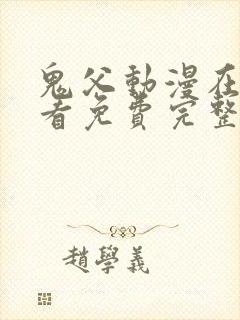 鬼父動漫在
看免費完整
趙學義